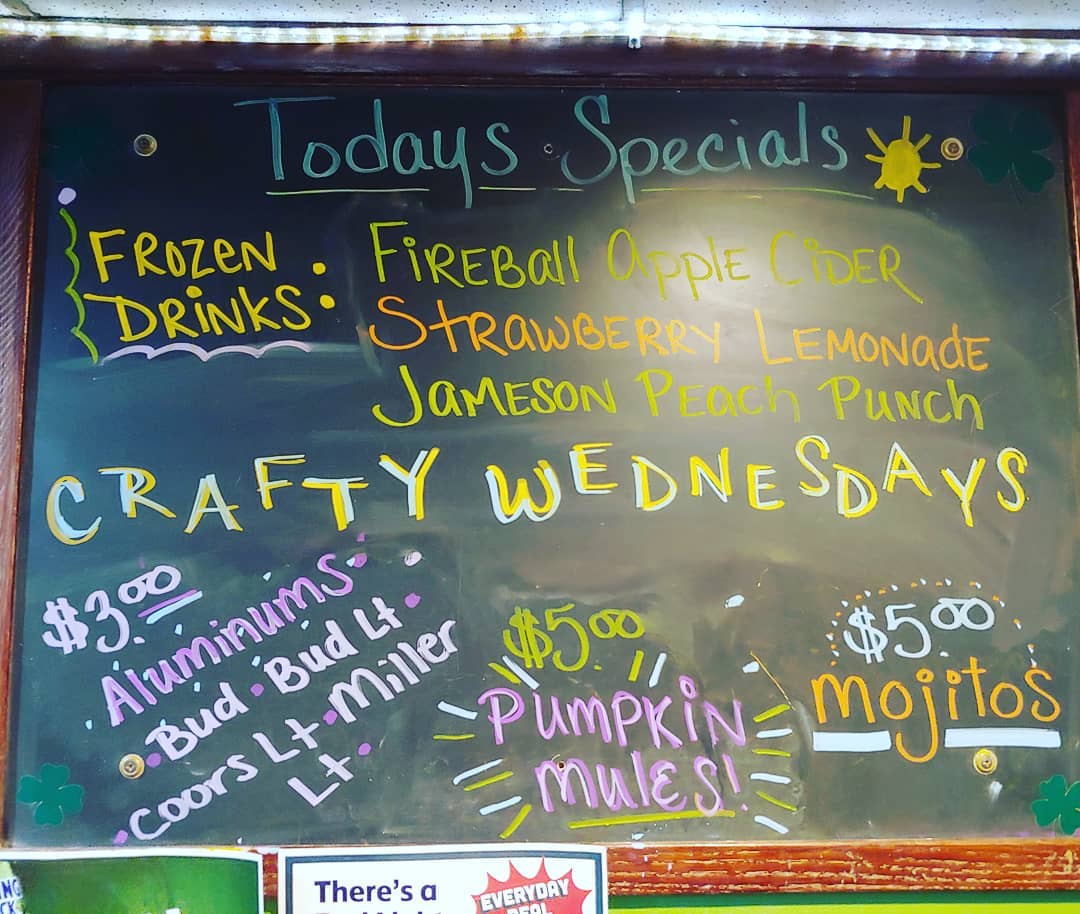 Todays Specials
FROZEN DRINKS:
FiREBall Apple CiDER
StRAWBERRY LEMONadE
JaMESON PEach PUNch
CRAFTY WEDNESDAYS
$3.00
Aluminums
Bud • Bud Lt •
Coors Lt • Miller
Lt •
$5.00
PUMPKiN
MULES!
$5.00
mojitos
There's a
EVERYDAY
DEAL